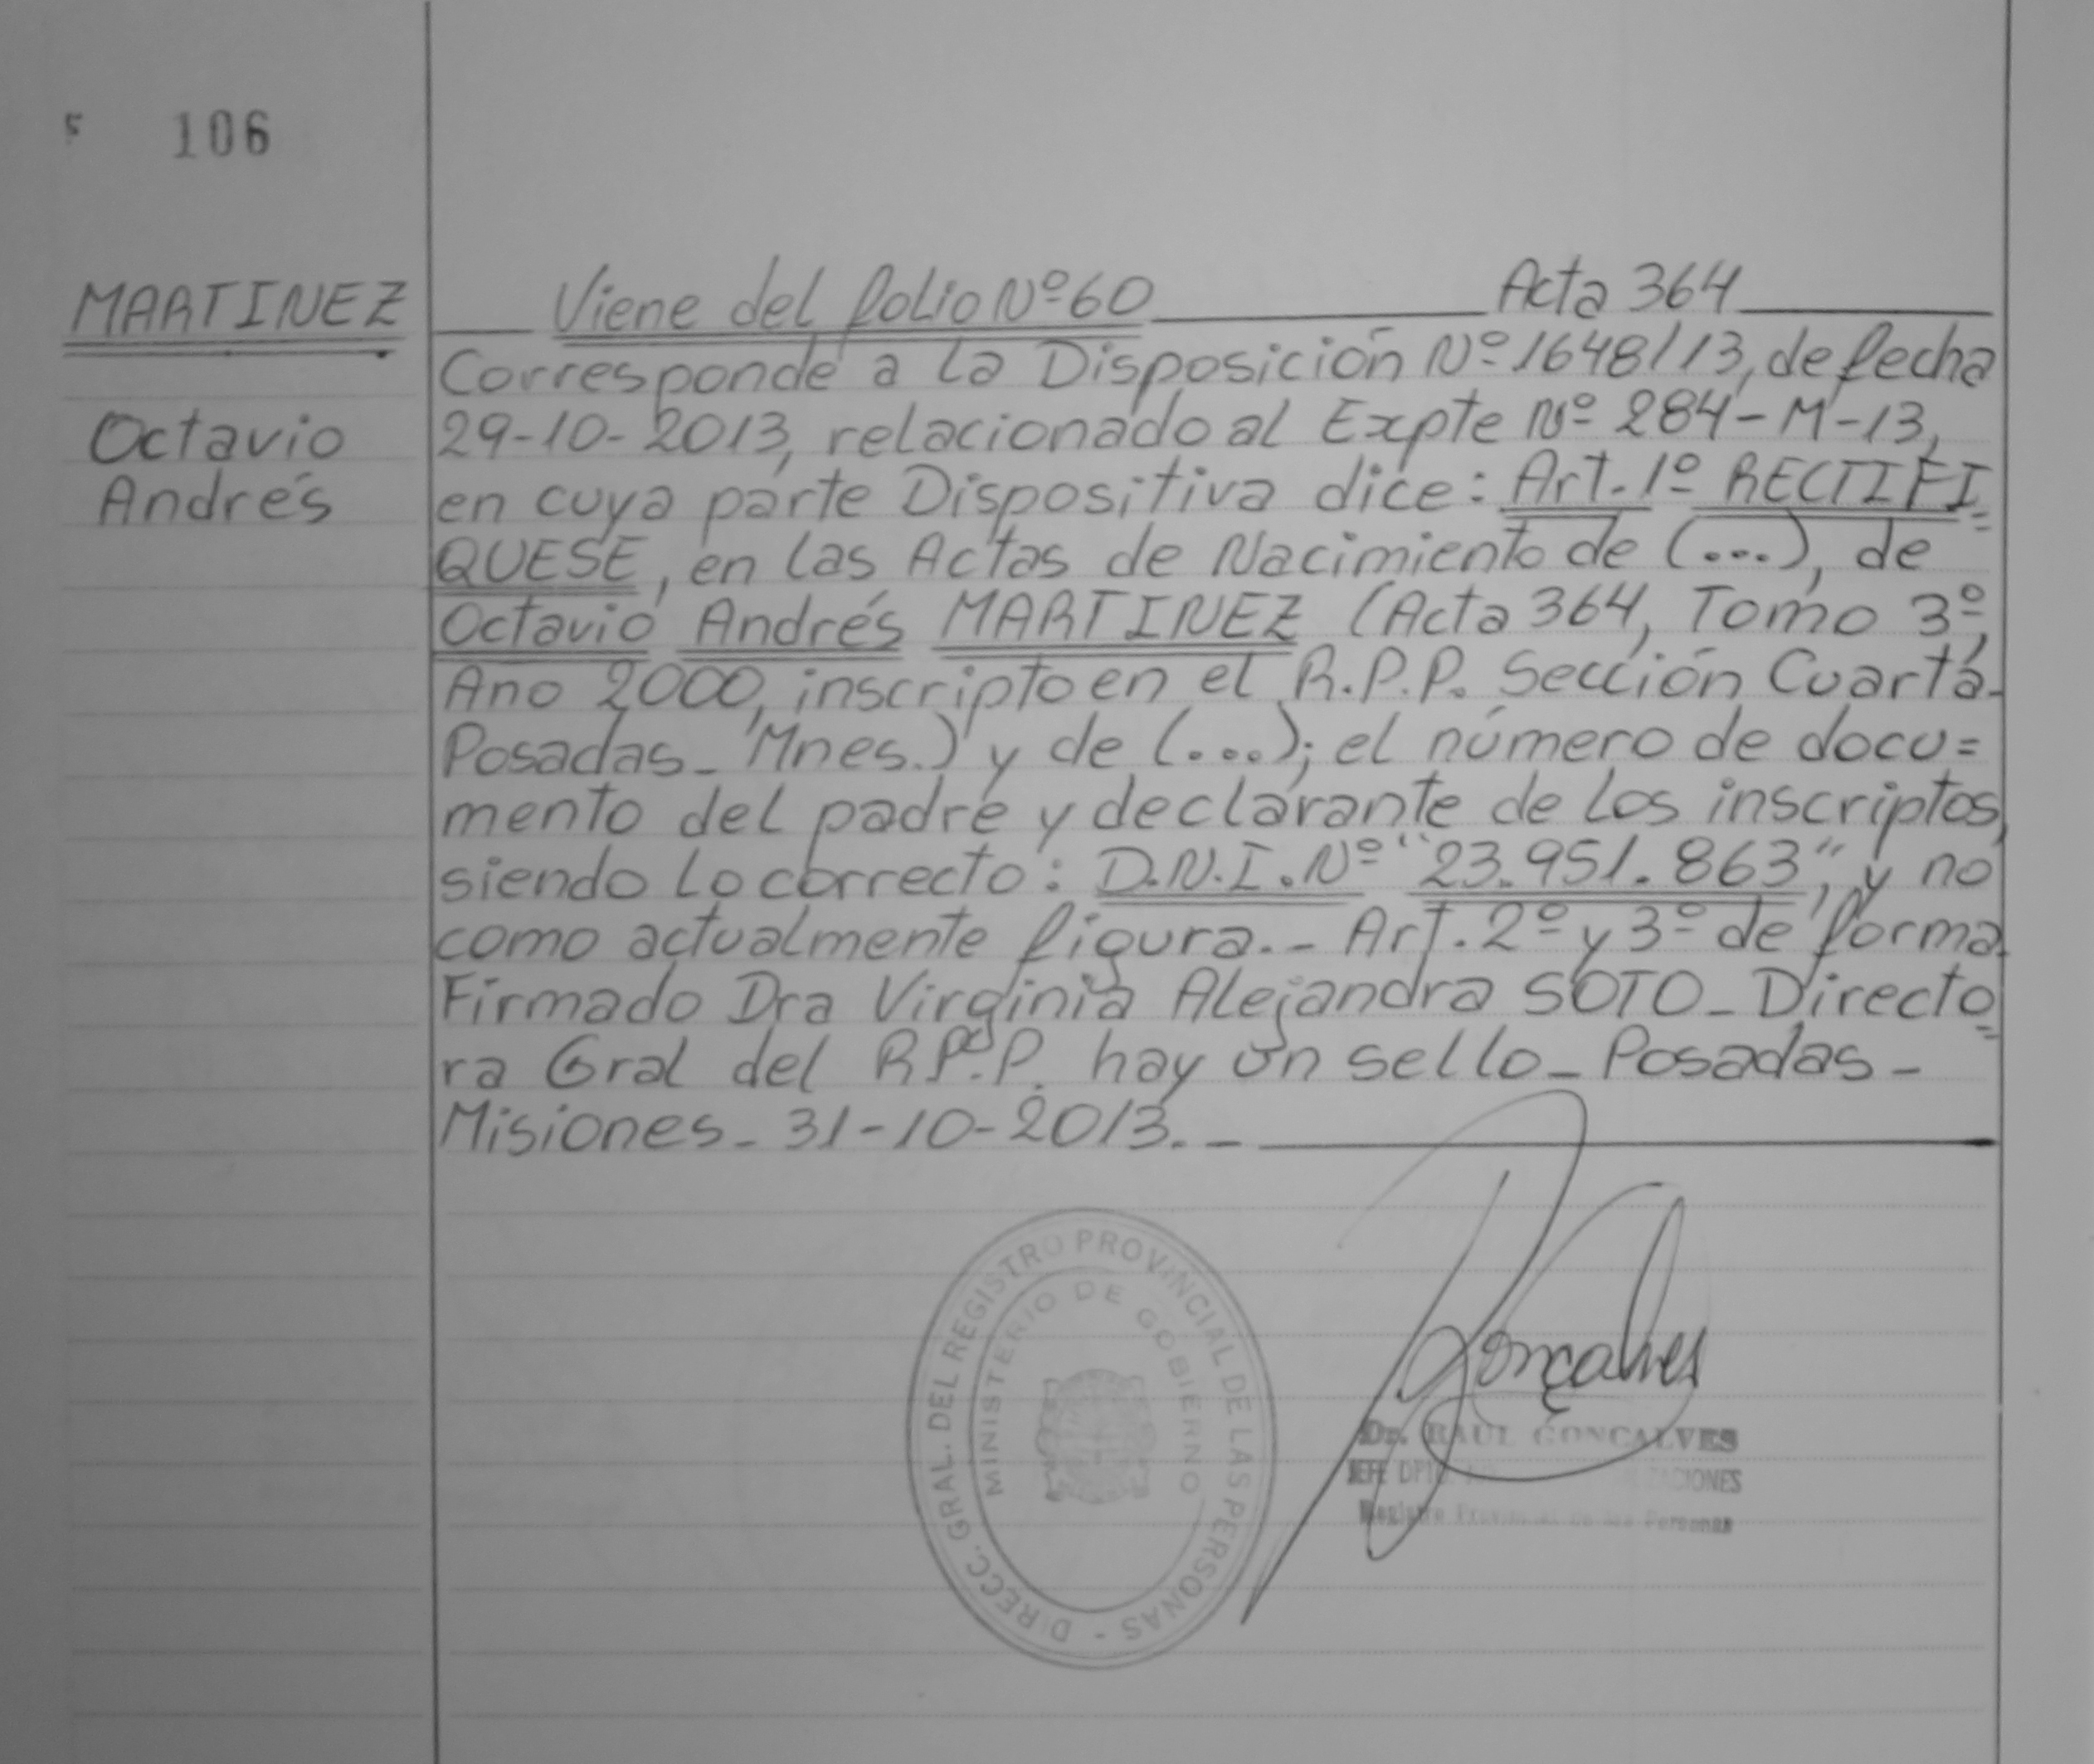 106
MARTINEZ
Octavio
Andrés
Viene del folio Nº 60 Acta 364
Corresponde a la Disposición Nº 1648/13, de fecha
29-10-2013, relacionado al Expte Nº 284-M-13,
en cuya parte Dispositiva dice: Art. 1º RECTIFI=
QUESE, en las Actas de Nacimiento de (...), de
Octavio Andrés MARTINEZ (Acta 364, Tomo 3º,
Ano 2000, inscripto en el R.P.P. Sección Cuarta-
Posadas- Mnes.) y de (...); el número de docu=
mento del padre y declarante de los inscriptos,
siendo lo correcto: D.N.I. Nº "23.951.863", y no
como actualmente figura.- Art. 2º y 3º de forma.
Firmado Dra Virginia Alejandra SOTO- Directo=
ra Gral del R.P.P. hay un sello- Posadas-
Misiones- 31-10-2013.-
DIRECC. GRAL. DEL REGISTRO PROVINCIAL DE LAS PERSONAS -
MINISTERIO DE GOBIERNO
Gonçalves
Dr. RAUL GONCALVES
JEFE DPTO.
Registro Provincial de las Personas